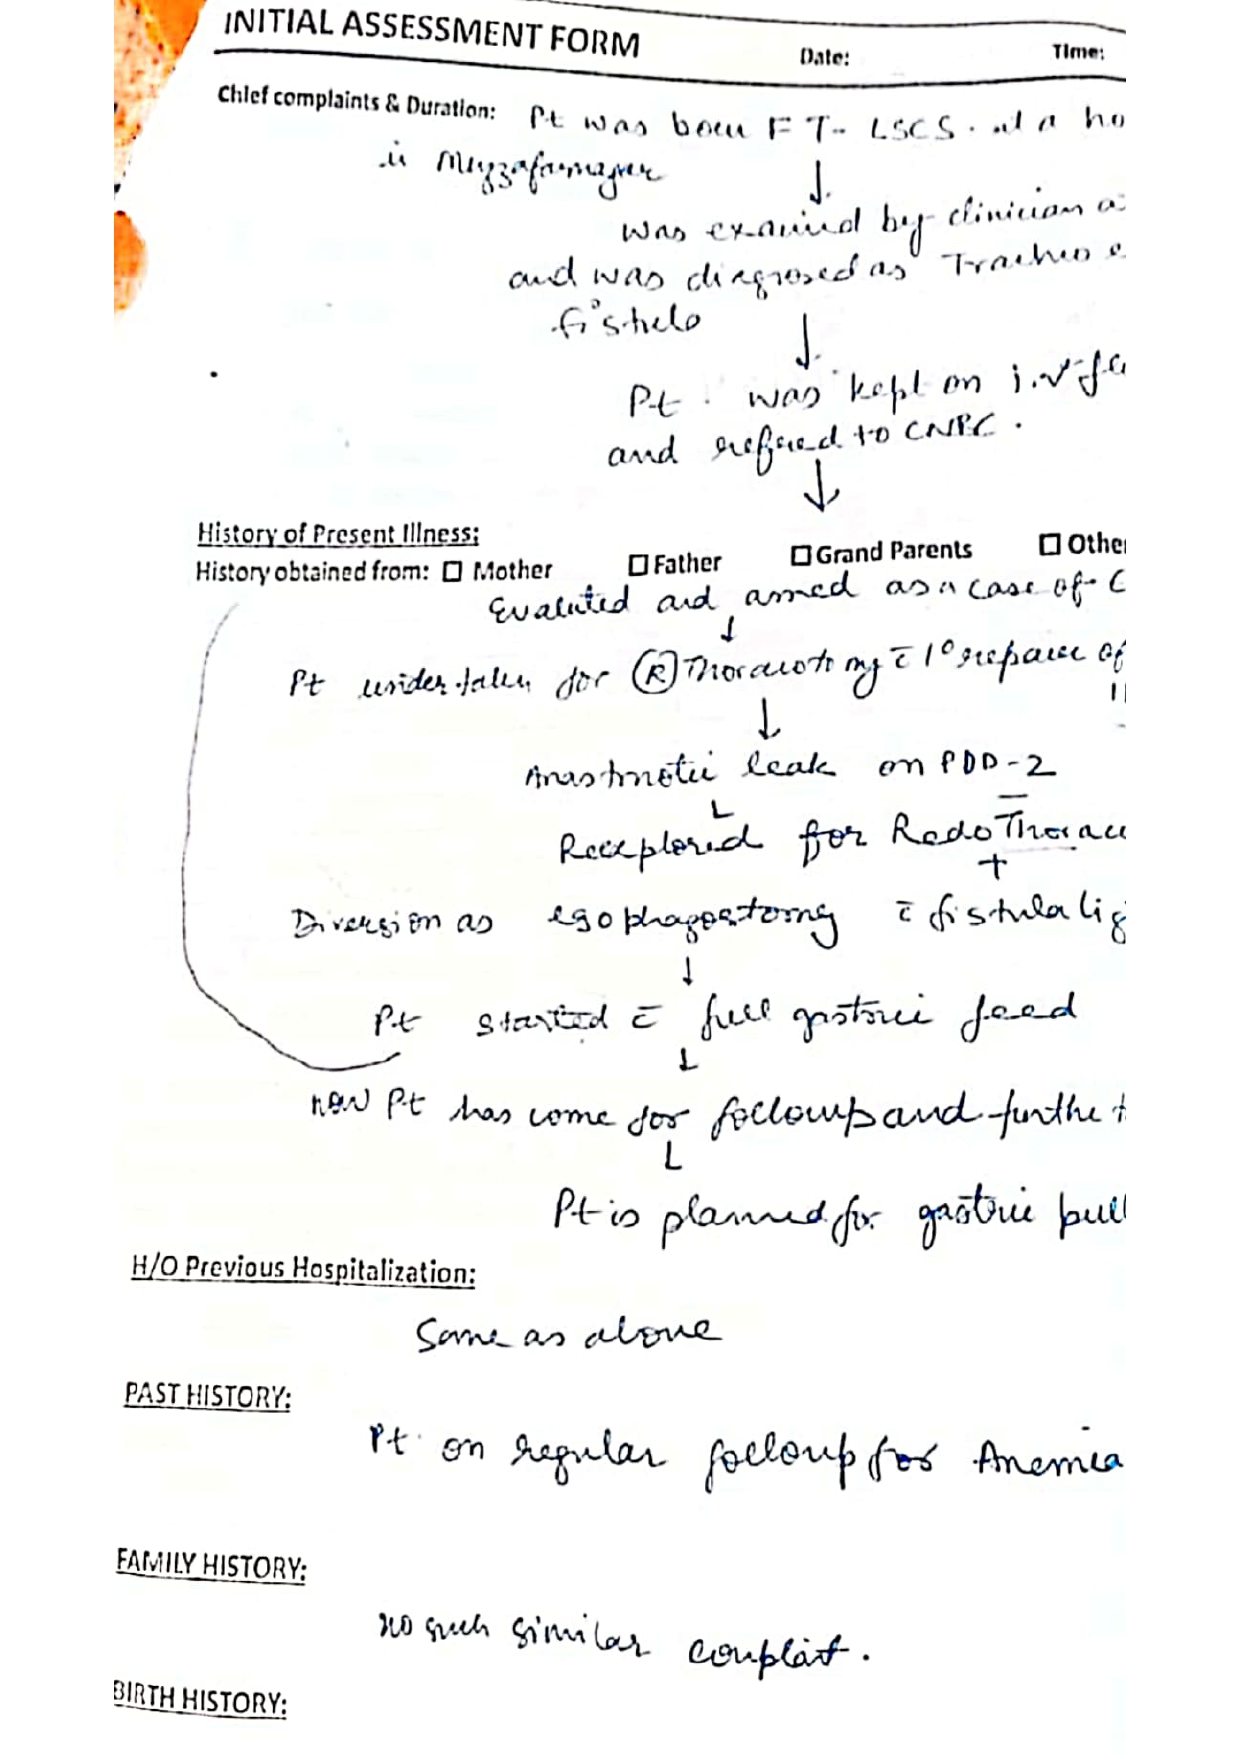 INITIAL ASSESSMENT FORM Date: Time:
Chief complaints & Duration: Pt was born FT- LSCS. at a ho
in Muzzafarnager
↓
was examined by clinician a
and was diagnosed as Tracheo e
fistula
↓
Pt. was kept on i.v f
and refered to CNBC.
↓
History of Present Illness:
History obtained from: ☐ Mother ☐ Father ☐ Grand Parents ☐ Other
Evaluted and as a case of C
↓
Pt undertaken for Ⓡ Thoracotomy c̄ 1° repair of
↓
leak on POD-2
↓
Reexplored for Redo Thorac
+
Diversion as esophagostomy c̄ fistula lig
↓
Pt started c̄ full gastric feed
↓
now Pt has come for followup and furthe t
↓
Pt is planned for gastric pull
H/O Previous Hospitalization:
Same as above
PAST HISTORY:
Pt. on regular folloup for Anemia
FAMILY HISTORY:
no such similar complait.
BIRTH HISTORY: